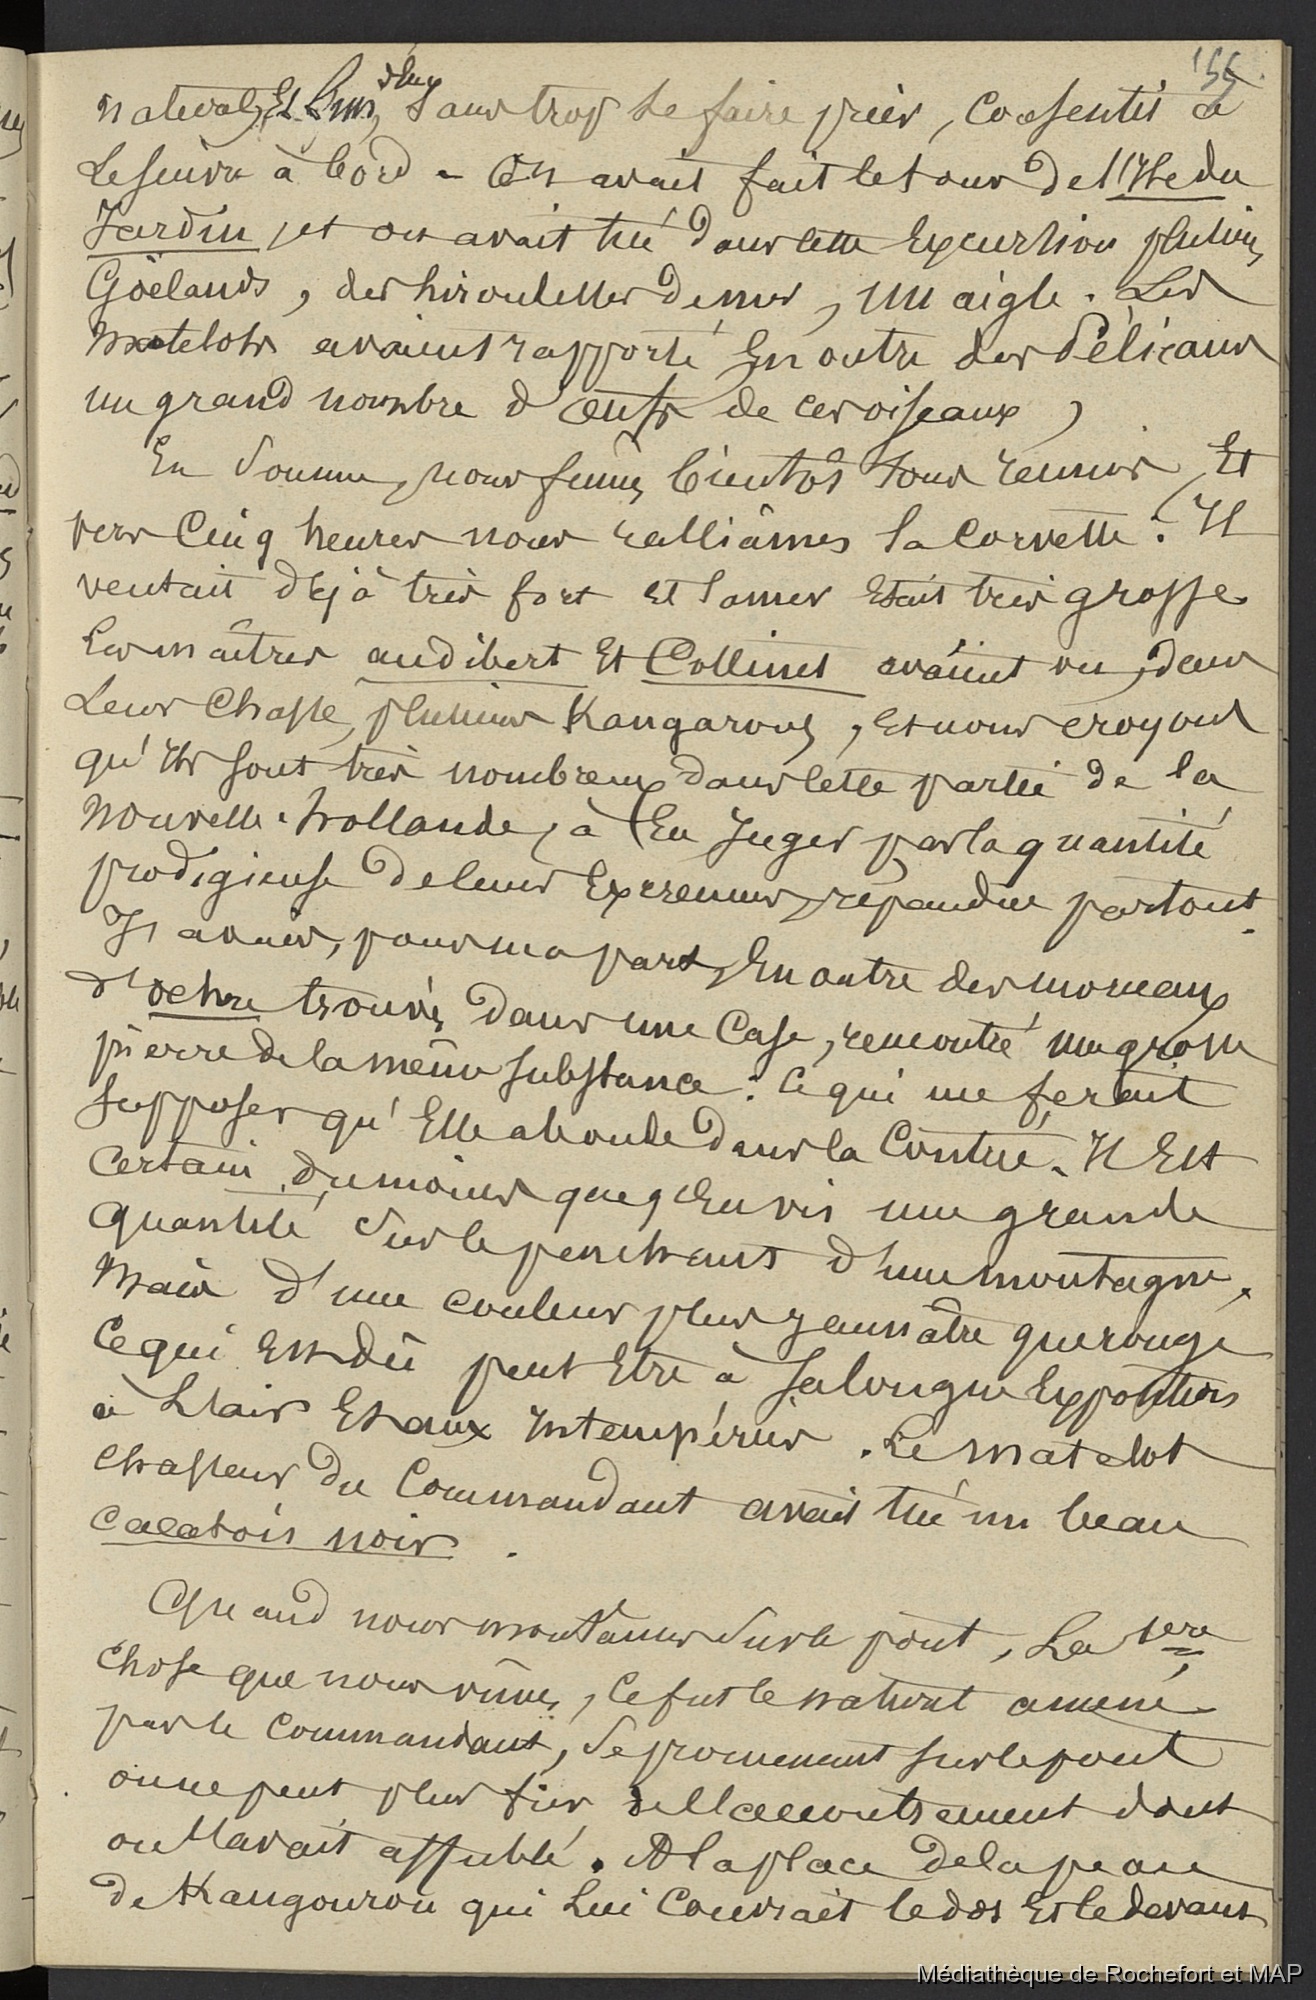 155
naturels, et l'un d'eux, sans trop se faire prier, consentit à
le suivre à bord - on avait fait le tour de l'Ile du
Jardin, et on avait tué dans cette Excursion plusieurs
Goëlands, des hirondelles de mer, un aigle. Les
matelots avaient rapporté En outre des Pélicans
un grand nombre d'œufs de ces oiseaux,
En Somme, nous fumes bientôt tous reunis, Et
vers Cinq heures nous ralliâmes la Corvette : Il
ventait déjà très fort et la mer était très grosse
Les maîtres audibert Et Collinet avaient vu, dans
Leur Chasse, plusieurs Kangarous, et nous croyons
qu'Ils sont très nombreux dans cette partie de la
Nouvelle-hollande, à En Juger par la quantité
prodigieuse de leurs Excremens, répandue partout.
J'avais, pour ma part, En outre des morceaux
d'ochre trouvés dans une Case, rencontré une grosse
pierre de la même substance : ce qui me ferait
supposer qu'Elle abonde dans la Contrée. Il Est
Certain, du moins que j'en vis une grande
quantité Sur le penchant d'une montagne,
Mais d'une couleur plus jaunâtre que rouge
Ce qui Est dû peut Etre à Sa longue Exposition
à L'air Et aux Intempéries. Le matelot
chasseur du Commandant avait tué un beau
cacatois noir.
Quand nous montâmes Sur le pont, La 1ere
Chose que nous vîmes, ce fut le naturel amené
par le Commandant, Se promenant sur le pont
on ne peut plus fier de l'accoutrement dont
on l'avait affublé. A la place de la peau
de Kangourou qui Lui Couvrait le dos Et le devant
Médiathèque de Rochefort et MAP